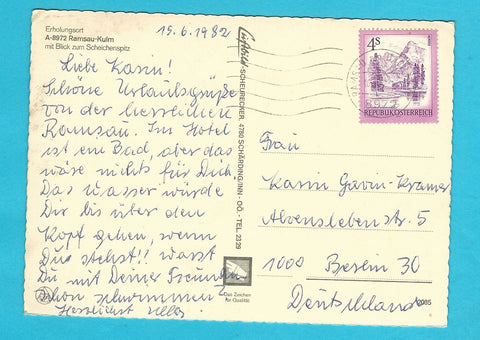 Erholungsort
A-8972 Ramsau-Kulm
mit Blick zum Scheichenspitz
15.6.1982
Liebe Karin!
Schöne Urlaubsgrüße
von der herrlichen
Ramsau. Im Hotel
ist ein Bad, aber das
wäre nichts für Dich.
Das Wasser würde
Dir bis über den
Kopf gehen, wenn
Du stehst!! warst
Du mit Deiner Freundin
schon schwimmen
Herzlichst
SCHEURECKER, 4780 SCHÄRDING/INN - OÖ. - TEL. 2329
Das Zeichen
für Qualität
4S
REPUBLIK ÖSTERREICH
8972
Frau
Karin Gavin-Kramer
Alvenslebenstr. 5
1000 Berlin 30
Deutschland